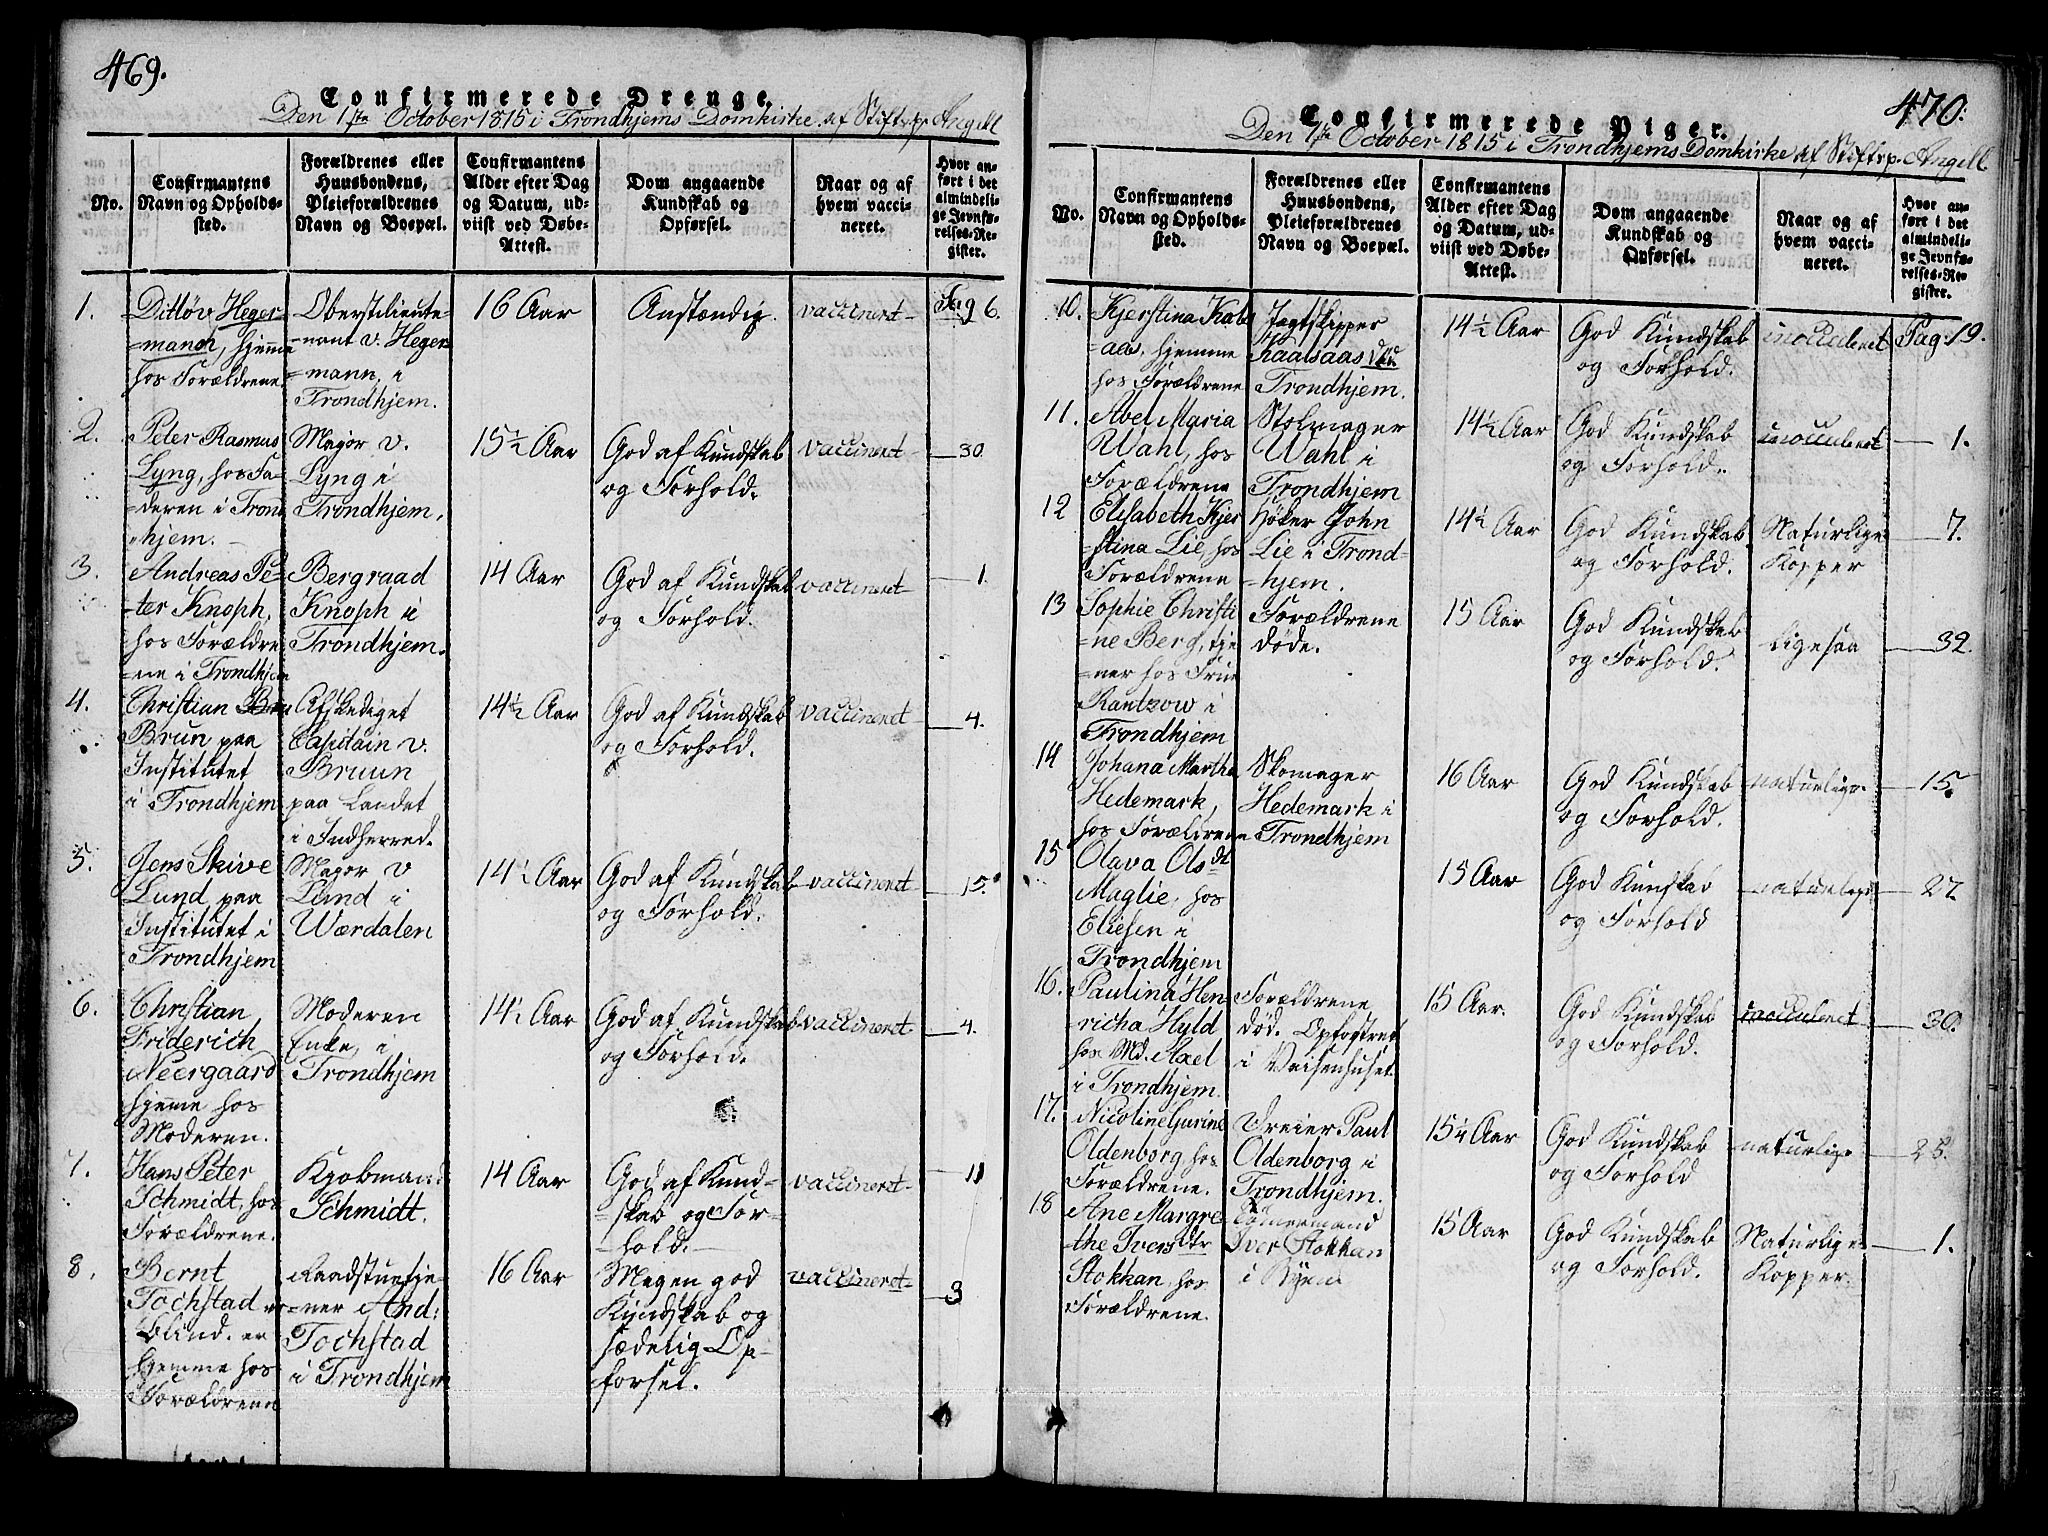 469.
Confirmerede Drenge.
Den 1ste October 1815 i Trondhjems Domkirke af Stiftsp. Angell
No.
Confirmantens Navn og Opholdssted.
Forældrenes eller Huusbondens, Pleieforældrenes Navn og Boepæl.
Confirmantens Alder efter Dag og Datum, udviist ved Døbe-Attest.
Dom angaaende Kundskab og Opførsel.
Naar og af hvem vaccineret.
Hvor anført i det almindelige Jevnførelses-Register.
1.
Ditløv Heger-
=mann, hjemme
hos Forældrene.
Oberstlieute-
=nant v. Heger
=mann, i
Trondhjem.
16 Aar
Anstændig.
vaccineret
Pag 6.
2.
Peter Rasmus
Lyng, hos Fa-
=deren i Trond
"hjem.
Major v.
Lyng i
Trondhjem.
15½ Aar
God af Kundskab
og Forhold.
vaccineret
30
3.
Andreas Pe-
=ter Knoph,
hos Forældre
=ne i Trondhjem
Bergraad
Knoph i
Trondhjem.
14 Aar
God af Kundskab
og Forhold.
vaccineret
1.
4.
Christian
Brun paa
Institutet
i Trondhjem
Afskediget
Capitain v.
Bruun
paa Landet
i Indherred.
14½ Aar
God af Kundskab
og Forhold.
vaccineret
4.
5.
Jens Skive
Lund, paa
Institutet i
Trondhjem
Major v
Lund i
Wærdalen
14½ Aar
God af Kundskab
og Forhold.
vaccineret
15.
6.
Christian
Friderich
Neergaard
hjemme hos
Moderen.
Moderen
Enke, i
Trondhjem
14½ Aar
God af Kundskab
og Forhold.
vaccineret
4.
7.
Hans Peter
Schmidt, hos
Forældrene.
Kjøbmand
Schmidt.
14 Aar
God af Kund-
=skab og For-
=hold.
vaccineret
11
8.
Bernt
Tochstad
blind. er
hjemme hos
Forældrene
Raadstuetje-
=ner And:
Tochstad
i Trondhjem
16 Aar
Megen god
Kundskab og
sædelig Op-
førsel.
vaccineret
3
470.
Confirmerede Piger.
Den 1ste October 1815 i Trondhjems Domkirke af Stiftsp. Angell
No.
Confirmantens Navn og Opholdssted.
Forældrenes eller Huusbondens, Pleieforældrenes Navn og Boepæl.
Confirmantens Alder efter Dag og Datum, udviist ved Døbe-Attest.
Dom angaaende Kundskab og Opførsel.
Naar og af hvem vaccineret.
Hvor anført i det almindelige Jevnførelses-Register.
10.
Kjerstina
hjemme
hos Forældrene
Jagtskipper
Kaalsaas
Trondhjem.
14½ Aar
God Kundskab
og Forhold.
inocculeret
Pag: 19.
11.
Abel Maria
Wahl, hos
Forældrene
Stolmager
Wahl i
Trondhjem
14½ Aar
God Kundskab
og Forhold.
inocculeret
1.
12
Elisabeth Kjer
=stina Lie, hos
Forældrene
Høker John
Lie i Trond-
=hjem.
14½ Aar
God Kundskab
og Forhold.
Naturlige
Kopper
7.
13
Sophie Christi
=ne Berg, tje
=ner hos Frue
Rantzow i
Trondhjem
Forældrene
døde.
15 Aar
God Kundskab
og Forhold.
ligesaa
32.
14
Johana Martha
Hedemark,
hos Forældrene
Skomager
Hedemark i
Trondhjem
16 Aar
God Kundskab
og Forhold.
naturlige
15.
15
Olava Olsdt
Maglie, hos
Eliesen i
Trondhjem
15 Aar
God Kunskab
og Forhold
naturlige
27.
16.
Paulina Hen
richa Hyld
hos Md. Axel
i Trondhjem.
Forældrene
død. Opfostret
i Vaisenhuset
15 Aar.
God Kundskab
og Forhold.
inocculeret
30.
17.
Nicoline Gurine
Oldenborg hos
Forældrene.
Dreier Paul
Oldenborg i
Trondhjem.
15¼ Aar
God Kundskab
og Forhold
naturlige
25.
18
Ane Margre
=the Iversdtr
Stokhan, hos
Forældrene.
Tømmermand
Iver Stokhan
i Byen
15 Aar
God Kundskab
og Forhold.
Naturlige
Kopper.
1.